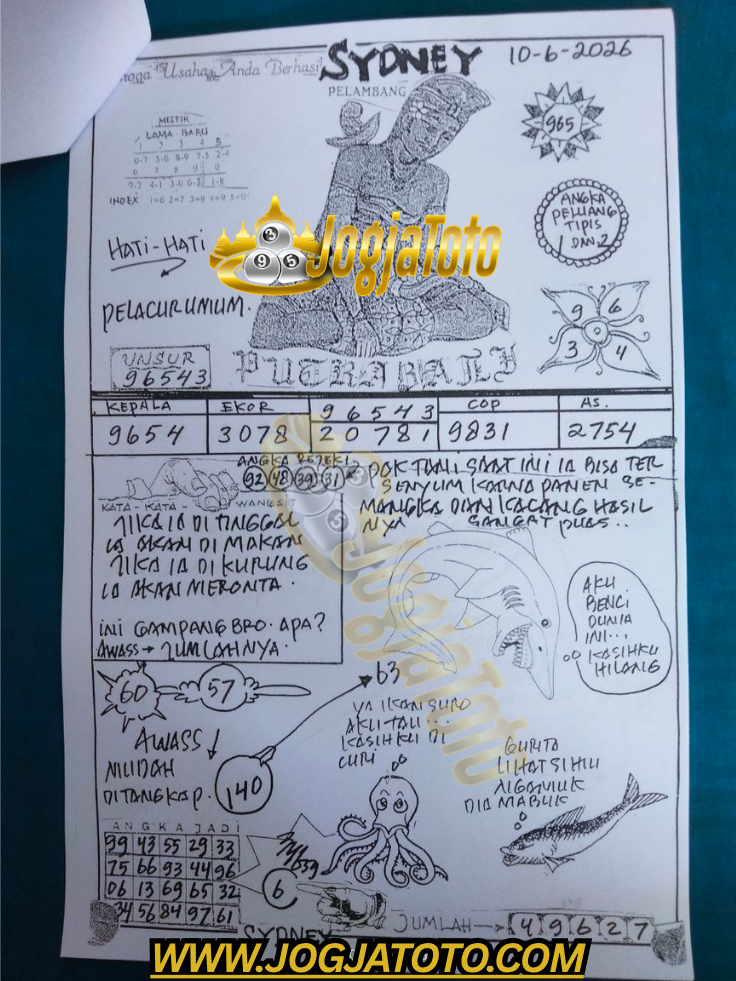 Usaha Anda Berhasil
SYDNEY
10-6-2026
PELAMBANG
MISTIK
LAMA - BARU
1 2 3 4 5
0-7 5-6 8-9 7-5 2-4
6 7 8 9 0
9-2 4-1 3-0 6-5 1-8
INDEX 1=6 2=7 3=8 4=9 5=0
965
ANGKA
PELUANG
TIPIS
1 DAN 2
HATI-HATI
PELACUR UMUM.
JogjaToto
3
9 5
9 6
3 4
UNSUR
96543
PUTRA BALI
KEPALA EKOR 96543 COP AS.
9654 3078 20781 9831 2754
ANGKA REZEKI
92 48 39 31
KATA - KATA - WANGSIT
JIKA IA DI TINGGAL
IA AKAN DI MAKAN
JIKA IA DI KURUNG
IA AKAN MERONTA.
INI GAMPANG BRO. APA?
AWASS → JUMLAHNYA.
PAK TANI SAAT INI IA BISA TER
SENYUM KARNA PANEN SE-
MANGKA DAN KACANG HASIL
NYA SANGAT PUAS..
JogjaToto
AKU
BENCI
DUNIA
INI...
KASIHKU
HILANG
60
57
63
AWASS
MUDAH
DITANGKAP.
140
YA IKAN SURO
AKU TAU...
KASIHKU DI
CURI
GURITA
LIHAT SI HIU
NGAMUK
DIA MABUK
ANGKA JADI
99 43 55 29 33
75 66 93 44 96
06 13 69 65 32
34 56 84 97 61
6
SYDNEY
JUMLAH → 49627
WWW.JOGJATOTO.COM